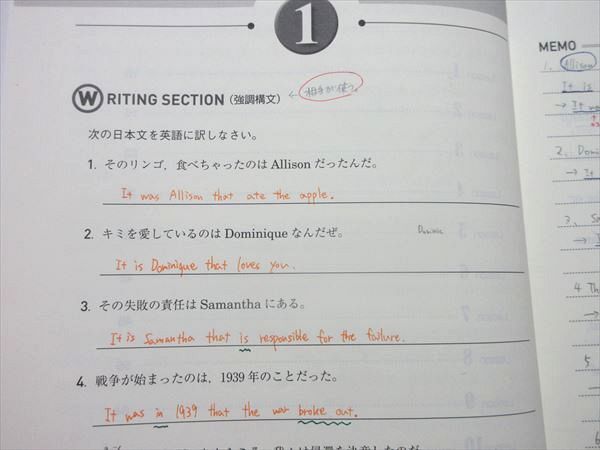 1
MEMO
WRITING SECTION (強調構文) ←
1. Allison
次の日本文を英語に訳しなさい。
It is
1. そのリンゴ，食べちゃったのは Allison だったんだ。
It was Allison that ate the apple.
2. キミを愛しているのは Dominique なんだぜ。
It is Dominique that loves you.
3. その失敗の責任は Samantha にある。
It is Samantha that is responsible for the failure.
4. 戦争が始まったのは，1939 年のことだった。
It was in 1939 that the war broke out.
2.
→ It
3.
4
5.
6